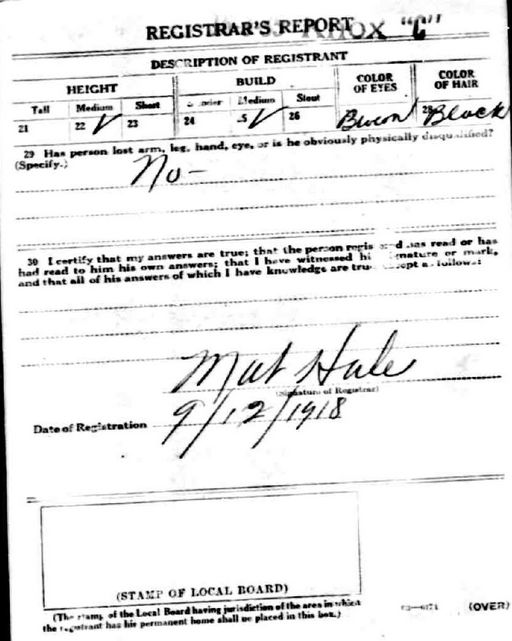 REGISTRAR'S REPORT
KNOX "C"
DESCRIPTION OF REGISTRANT
HEIGHT BUILD COLOR OF EYES COLOR OF HAIR
Tall Medium Short Slender Medium Stout
21 22 ✓ 23 24 25 ✓ 26 Brown 28 Black
29 Has person lost arm, leg, hand, eye, or is he obviously physically disqualified?
(Specify.)
No -
30 I certify that my answers are true; that the person registered has read or has
had read to him his own answers; that I have witnessed his signature or mark,
and that all of his answers of which I have knowledge are true, except as follows:
Mat Hale
(Signature of Registrar)
Date of Registration 9/12/1918
(STAMP OF LOCAL BOARD)
(The stamp of the Local Board having jurisdiction of the area in which
the registrant has his permanent home shall be placed in this box.)
(OVER)